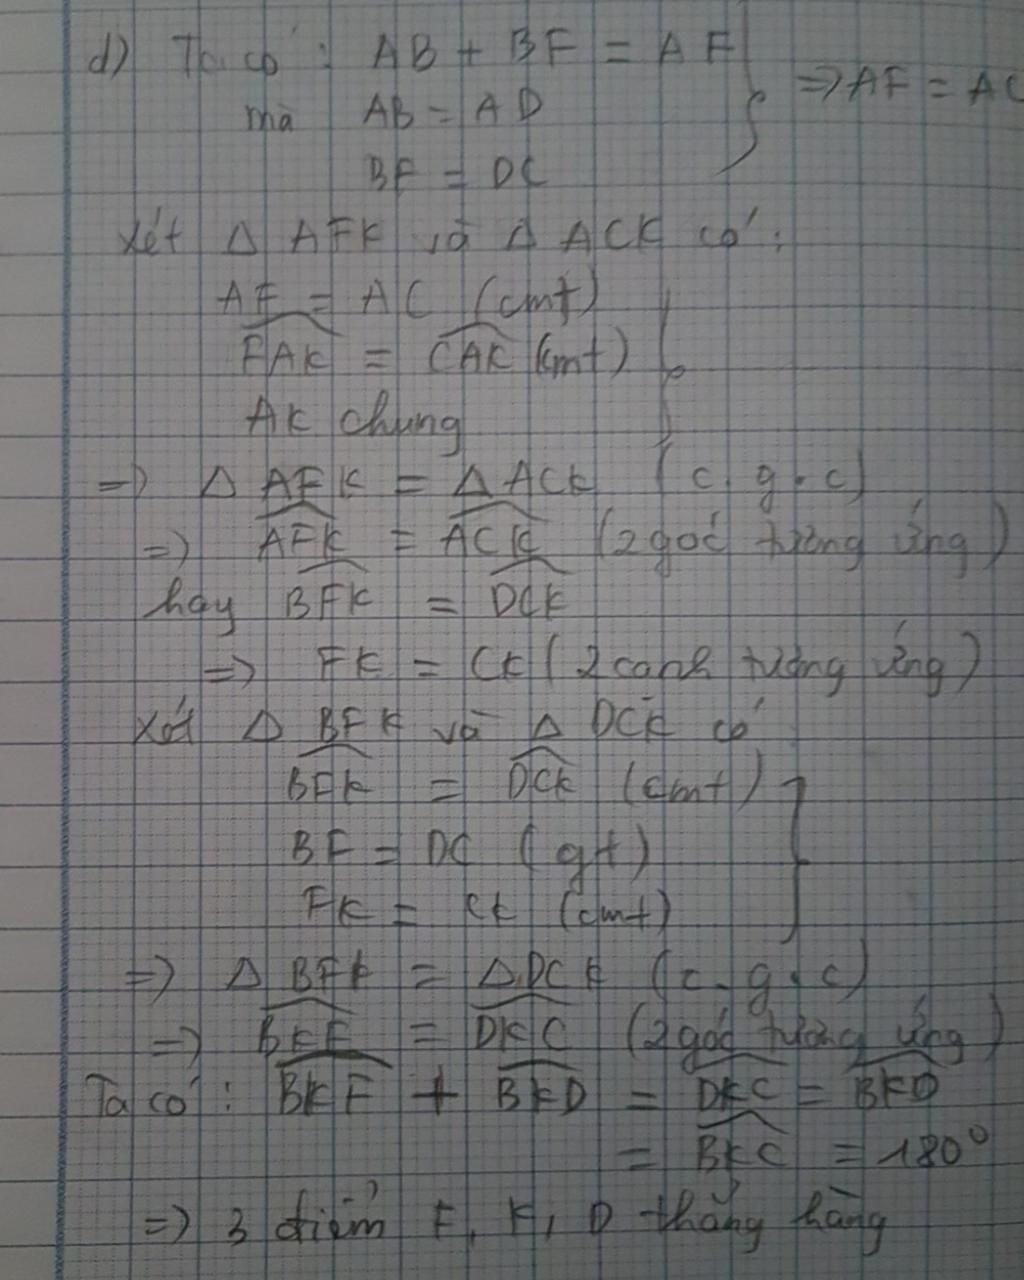 d) Ta có : AB + BF = AF
mà AB = AD
BF = DC
} => AF = AC
Xét Δ AFK và Δ ACK có :
AF = AC (cmt)
FAK = CAK (cmt)
AK chung
=> Δ AFK = Δ ACK (c.g.c)
=> AFK = ACK (2 góc tương ứng)
hay BFK = DCK
=> FK = CK (2 cạnh tương ứng)
Xét Δ BFK và Δ DCK có
BFK = DCK (cmt)
BF = DC (gt)
FK = CK (cmt)
=> Δ BFK = Δ DCK (c.g.c)
=> BKF = DKC (2 góc tương ứng)
Ta có : BKF + BKD = DKC = BKD
= BKC = 180°
=> 3 điểm F, K, D thẳng hàng